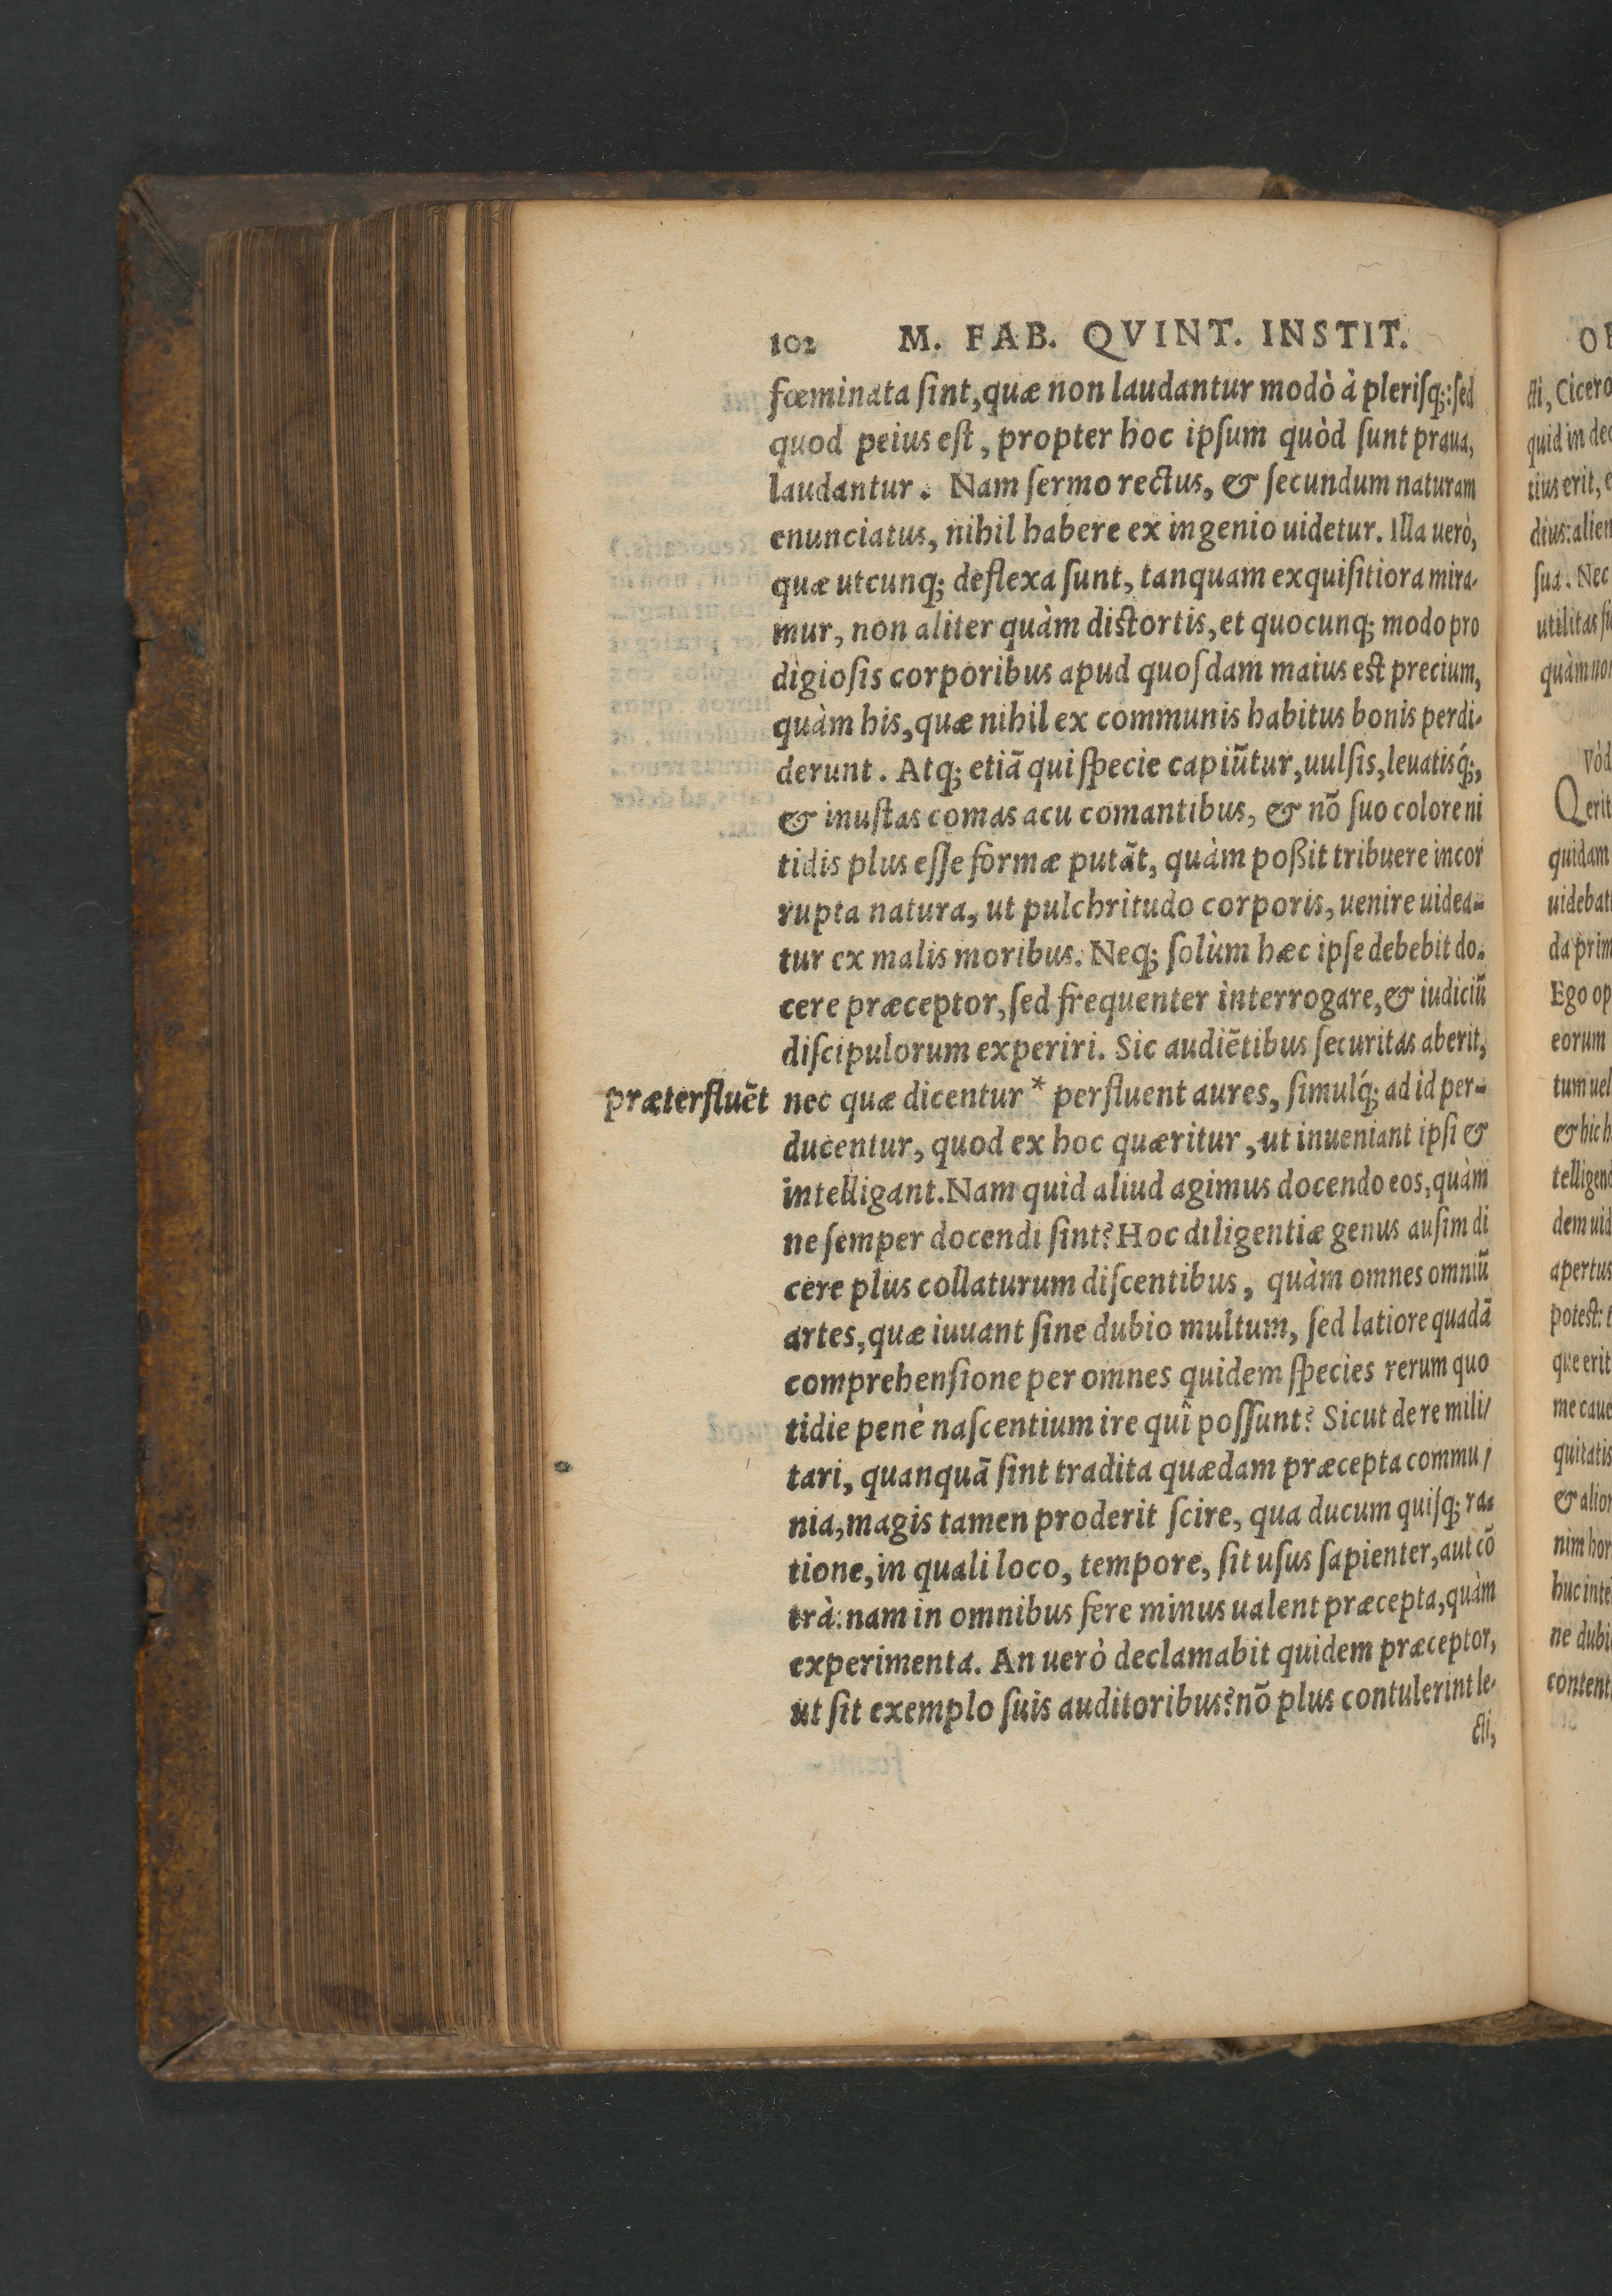 102 M. FAB. QVINT. INSTIT.
fœminata ſint, quæ non laudantur modò à pleriſq;: ſed
quod peius eſt, propter hoc ipſum quòd ſunt praua,
laudantur. Nam ſermo rectus, & ſecundum naturam
enunciatus, nihil habere ex ingenio uidetur. Illa uerò,
quæ utcunq; deflexa ſunt, tanquam exquiſitiora mira-
mur, non aliter quàm diſtortis, et quocunq; modo pro
digioſis corporibus apud quoſdam maius eſt precium,
quàm his, quæ nihil ex communis habitus bonis perdi-
derunt. Atq; etiã qui ſpecie capiũtur, uulſis, leuatisq́;,
& inuſtas comas acu comantibus, & nõ ſuo colore ni
tidis plus eſſe formæ putãt, quàm poßit tribuere incor
rupta natura, ut pulchritudo corporis, uenire uidea-
tur ex malis moribus. Neq; ſolùm hæc ipſe debebit do-
cere præceptor, ſed frequenter interrogare, & iudiciũ
diſcipulorum experiri. Sic audiẽtibus ſecuritas aberit,
præterfluẽt nec quæ dicentur * perfluent aures, ſimulq́; ad id per-
ducentur, quod ex hoc quæritur, ut inueniant ipſi &
intelligant. Nam quid aliud agimus docendo eos, quàm
ne ſemper docendi ſint? Hoc diligentiæ genus auſim di
cere plus collaturum diſcentibus, quàm omnes omniũ
artes, quæ iuuant ſine dubio multum, ſed latiore quadã
comprehenſione per omnes quidem ſpecies rerum quo
tidie penè naſcentium ire quî poſſunt? Sicut de re mili/
tari, quanquã ſint tradita quædam præcepta commu/
nia, magis tamen proderit ſcire, qua ducum quiſq; ra-
tione, in quali loco, tempore, ſit uſus ſapienter, aut cõ
trà: nam in omnibus fere minus ualent præcepta, quàm
experimenta. An uerò declamabit quidem præceptor,
ut ſit exemplo ſuis auditoribus? nõ plus contulerint le-
cti,
cti, Cicero
quid in dec
tius erit, e
dius: alien
ſua. Nec
utilitas ſi
quàm non
Vòd
Q erit
quidam
uidebat
da prim
Ego op
eorum
tum uel
& hic h
telligend
dem uid
apertus
poteſt: t
que erit
me caue
quitatis
& alior
nim hor
huc inte
ne dubi
content